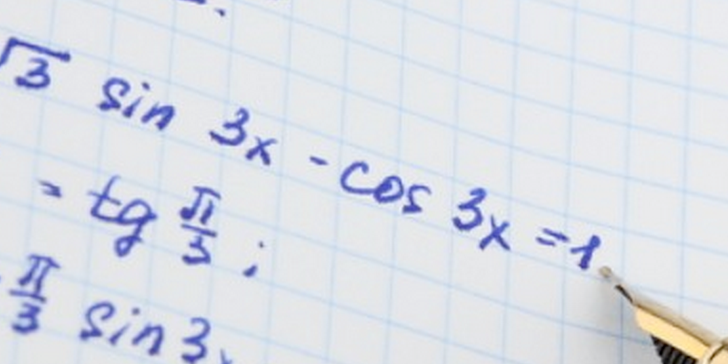 √3 sin 3x - cos 3x = 1
= tg π/3 ;
π/3 sin 3x